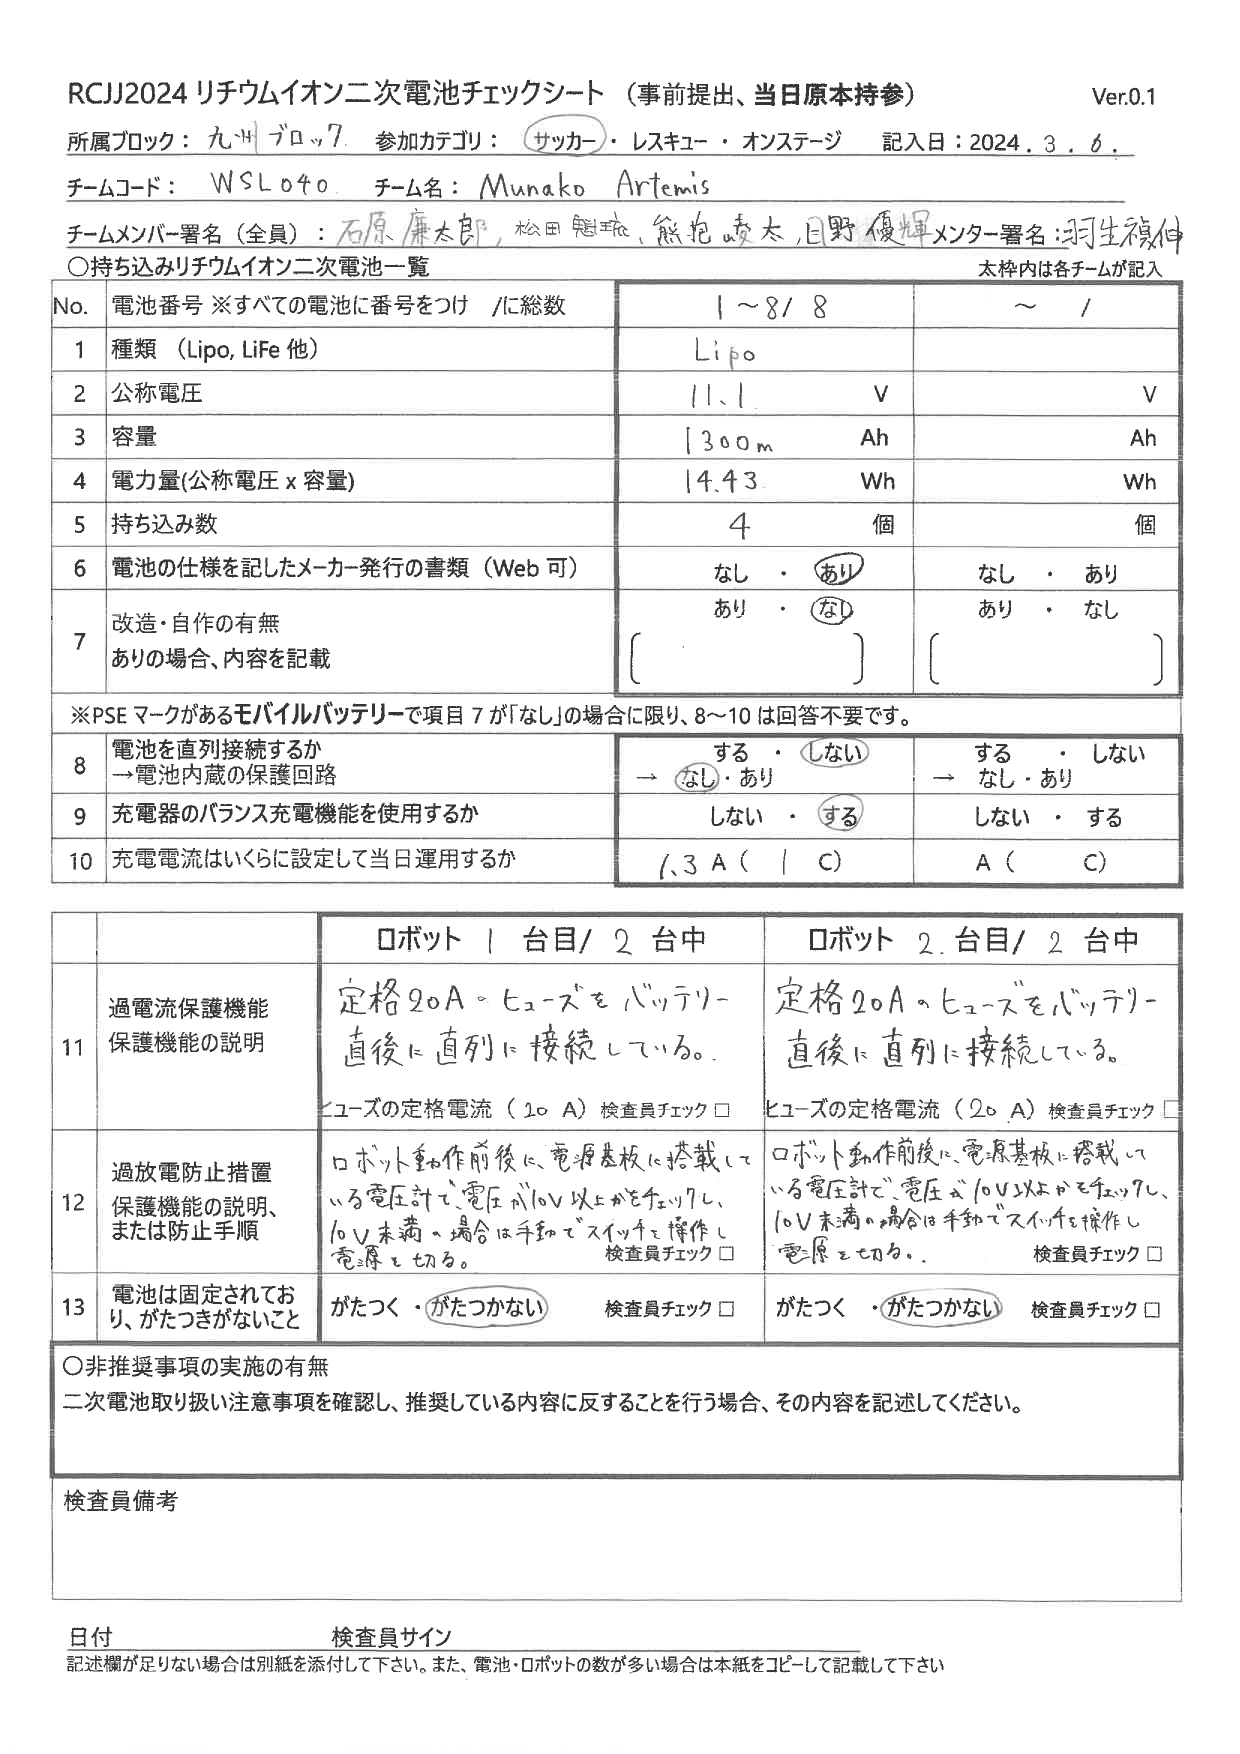 RCJJ2024 リチウムイオン二次電池チェックシート （事前提出、当日原本持参） Ver.0.1
所属ブロック： 九州ブロック 参加カテゴリ： サッカー ・ レスキュー ・ オンステージ 記入日：2024 . 3 . 6 .
チームコード： WSL040 チーム名： Munako Artemis
チームメンバー署名（全員）： 石原 廉太郎, 松田 , 熊抱 崚太, 日野 優輝 メンター署名：羽生禎伸
〇持ち込みリチウムイオン二次電池一覧 太枠内は各チームが記入
No. 電池番号 ※すべての電池に番号をつけ /に総数 1 ～ 8 / 8 ～ /
1 種類 （Lipo, LiFe 他） Lipo
2 公称電圧 11.1 V V
3 容量 1300m Ah Ah
4 電力量(公称電圧 x 容量) 14.43 Wh Wh
5 持ち込み数 4 個 個
6 電池の仕様を記したメーカー発行の書類（Web 可） なし ・ あり なし ・ あり
7 改造・自作の有無 あり ・ なし あり ・ なし
ありの場合、内容を記載 [ ] [ ]
※PSE マークがあるモバイルバッテリーで項目 7 が「なし」の場合に限り、8～10 は回答不要です。
8 電池を直列接続するか する ・ しない する ・ しない
→電池内蔵の保護回路 → なし・あり → なし・あり
9 充電器のバランス充電機能を使用するか しない ・ する しない ・ する
10 充電電流はいくらに設定して当日運用するか 1.3 A（ 1 C） A（ C）
ロボット 1 台目/ 2 台中 ロボット 2. 台目/ 2 台中
11 過電流保護機能
保護機能の説明
定格20A。ヒューズをバッテリー
直後に直列に接続している。
ヒューズの定格電流（ 20 A）検査員チェック □
定格20Aのヒューズをバッテリー
直後に直列に接続している。
ヒューズの定格電流（ 20 A）検査員チェック □
12 過放電防止措置
保護機能の説明、
または防止手順
ロボット動作前後に、電源基板に搭載して
いる電圧計で、電圧が10V以上かをチェックし、
10V未満の場合は手動でスイッチを操作し
電源を切る。 検査員チェック □
ロボット動作前後に、電源基板に搭載して
いる電圧計で、電圧が10V以上かをチェックし、
10V未満の場合は手動でスイッチを操作し
電源を切る。 検査員チェック □
13 電池は固定されてお
り、がたつきがないこと
がたつく ・ がたつかない 検査員チェック □ がたつく ・ がたつかない 検査員チェック □
〇非推奨事項の実施の有無
二次電池取り扱い注意事項を確認し、推奨している内容に反することを行う場合、その内容を記述してください。
検査員備考
日付 検査員サイン
記述欄が足りない場合は別紙を添付して下さい。また、電池・ロボットの数が多い場合は本紙をコピーして記載して下さい